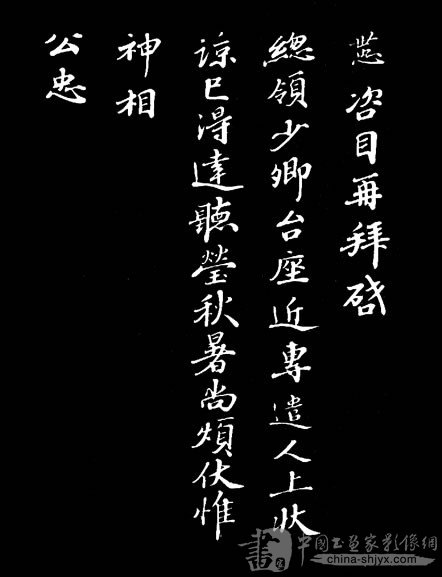 咨目再拜啓
總領少卿台座近專遣人上狀
諒已得達聽瑩秋暑尚煩伏惟
神相
公忠
書
中國书画家影像網
china-shjyx.com